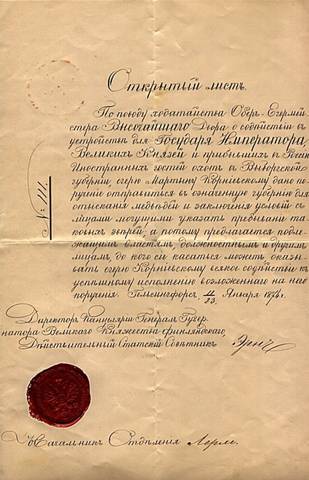 Открытый листъ.
По поводу ходатайства Оберъ-Егермей
стера Высочайшаго Двора о содѣйствіи въ
устройствѣ для Государя Императора,
Великихъ Князей и прибывшихъ въ Россію
Иностранныхъ гостей охотъ въ Выборгской
губерніи, егерю Мартыну Корнильскому дано по
рученіе отправиться въ означенную губернію для
отысканія медвѣдей и заключенія условій съ
лицами могущими указать пребываніе та
ковыхъ звѣрей, а потому предлагается подле
жащимъ властямъ, должностнымъ и другимъ
лицамъ, до кого сіе касаться можетъ оказы
вать егерю Корнильскому всякое содѣйствіе къ
успѣшному исполненію возложеннаго на него
порученія. Гельсингфорсъ, 11/23 Января 1874 г.
№ 111.
Директоръ Канцеляріи Генералъ Губер
натора Великаго Княжества Финляндскаго
Дѣйствительный Статскій Совѣтникъ
Начальникъ Отдѣленія